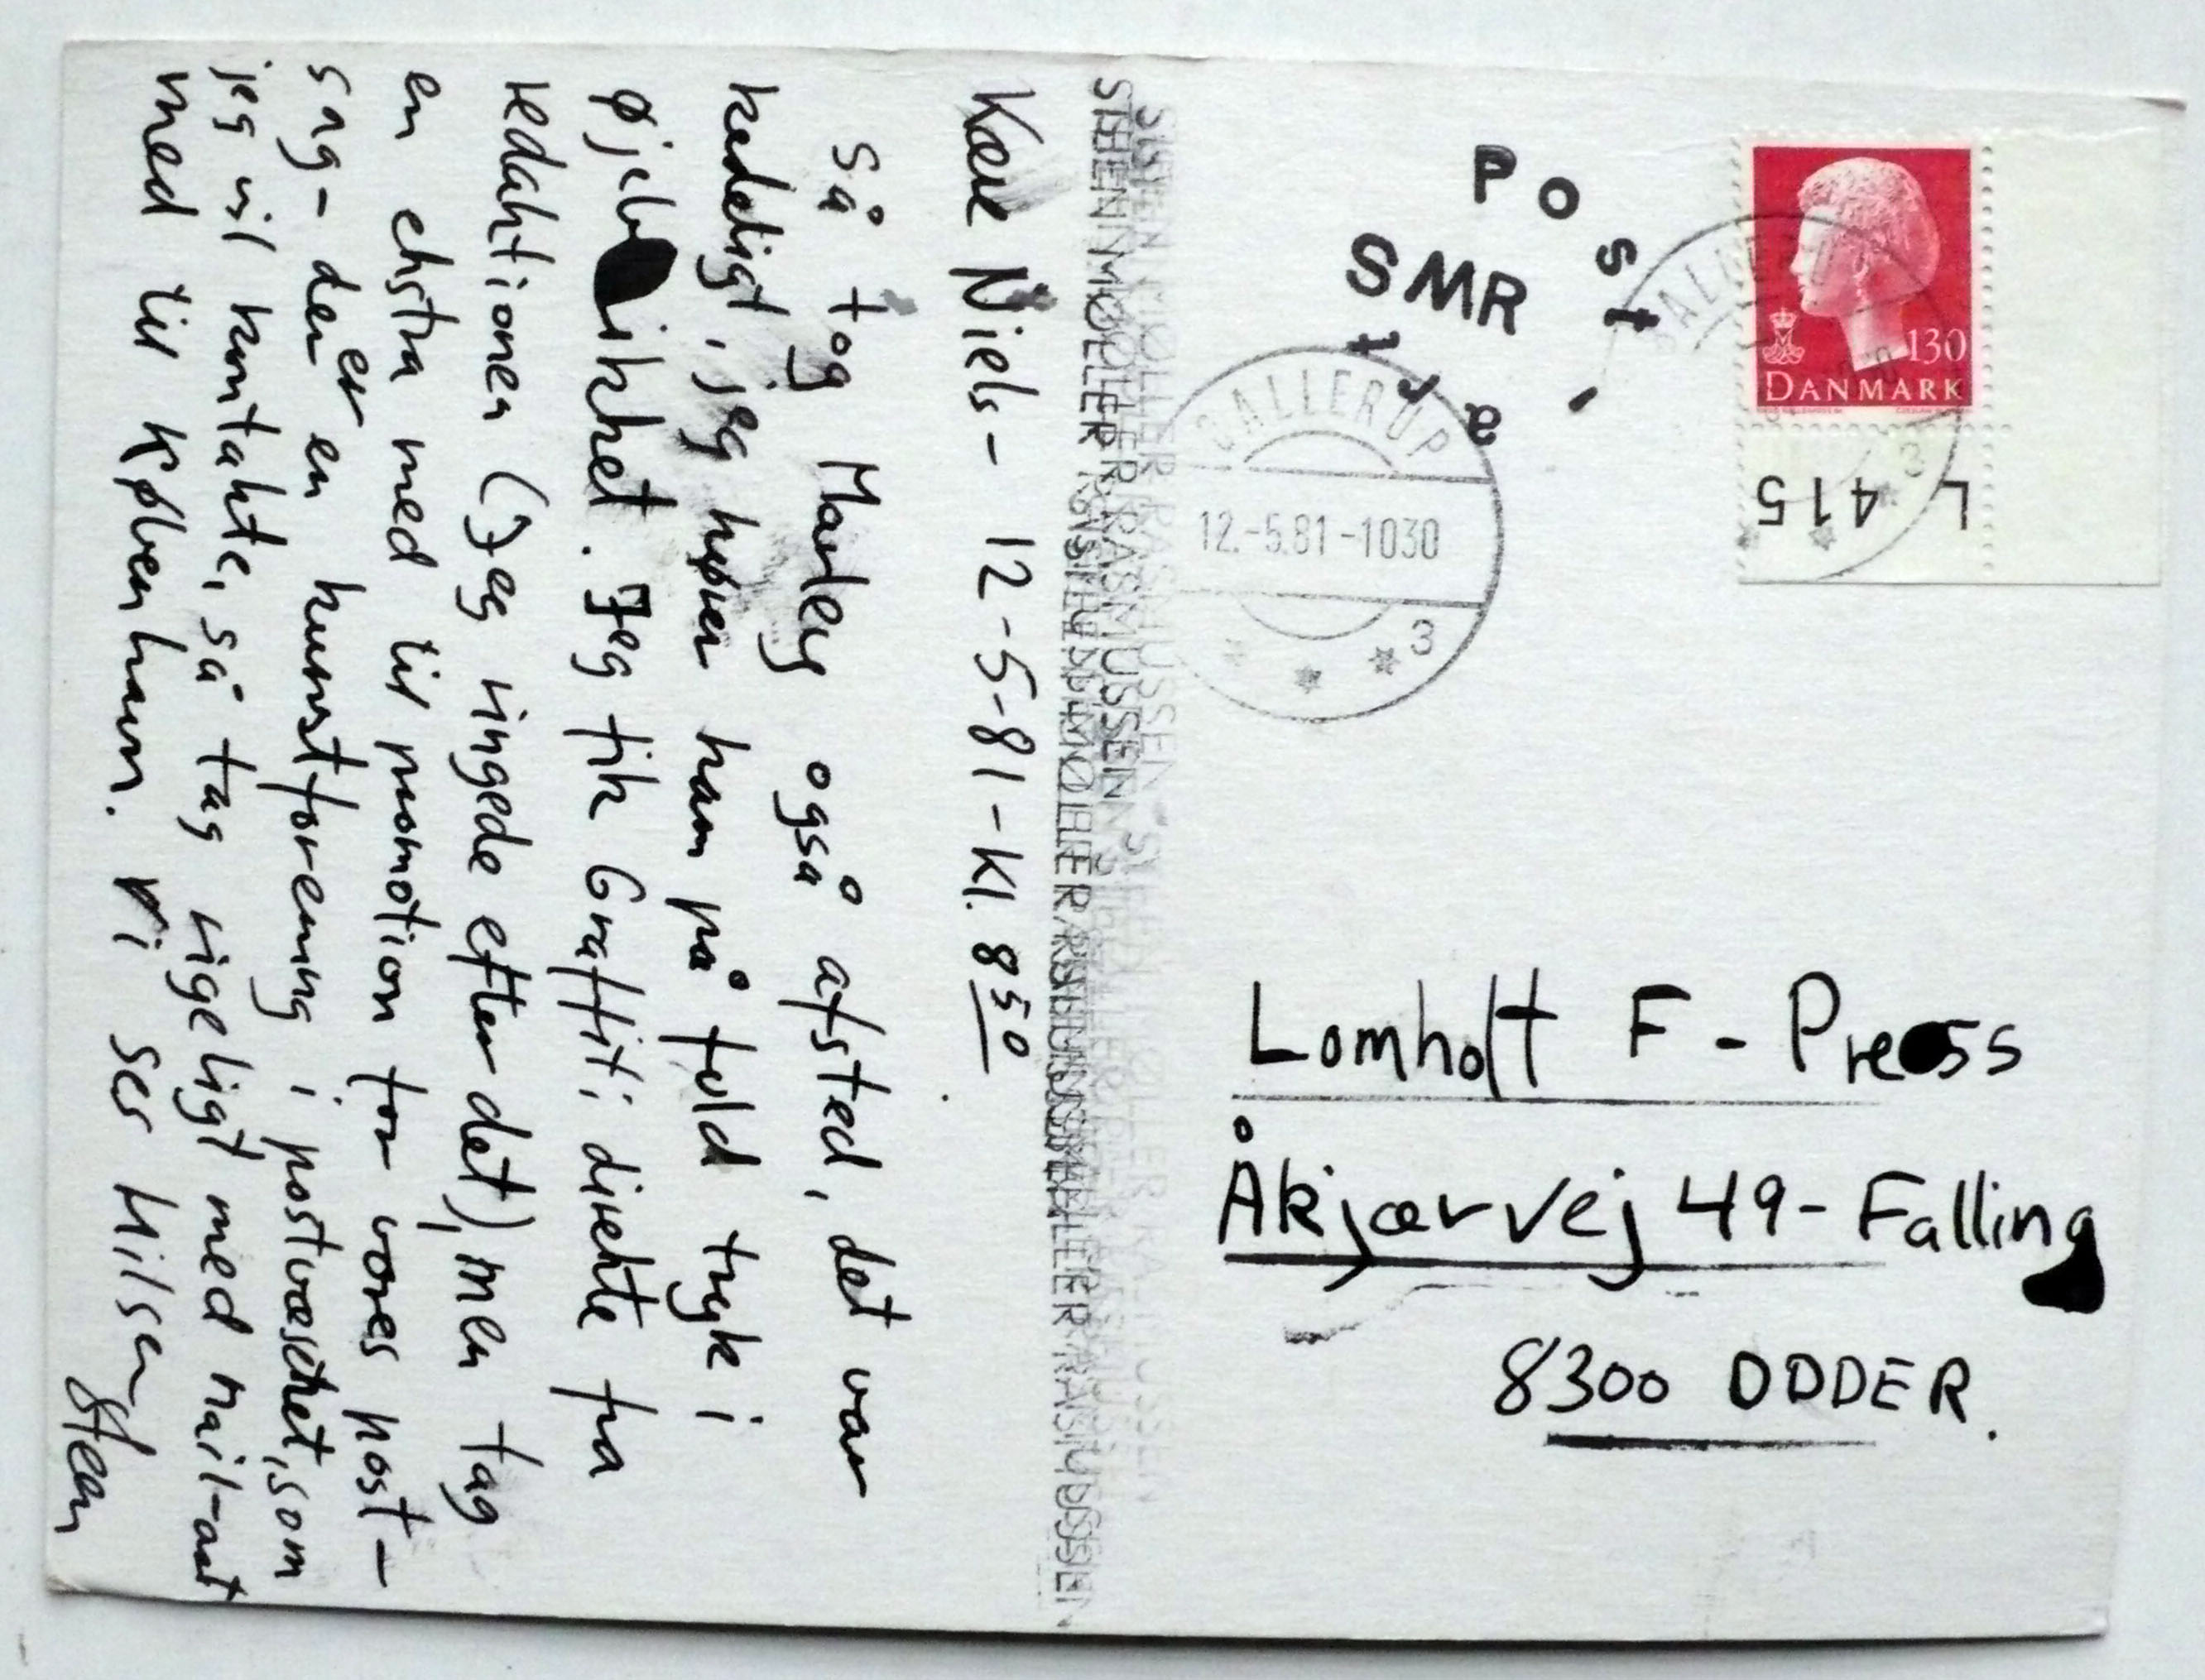 Kære Niels - 12-5-81-Kl. 8⁵⁰
Så tog Marley også afsted, det var
kedeligt, jeg hører ham på fuld tryk i
øjeblikket. Jeg fik Graffiti direkte fra
redaktionen (Jeg ringede efter det), men tag
en ekstra med til promotion for vores post-
sag - der er en kunstforening i postvæsenet, som
jeg vil kontakte, så tag rigeligt med mail-art
med til København. Vi ses Hilsen
Steen
STEEN MØLLER RASMUSSEN
Post
SMR
DANMARK
130
L 415
GALLERUP
12.-5.81-1030
3
Lomholt F-Press
Åkjærvej 49-Falling
8300 ODDER.